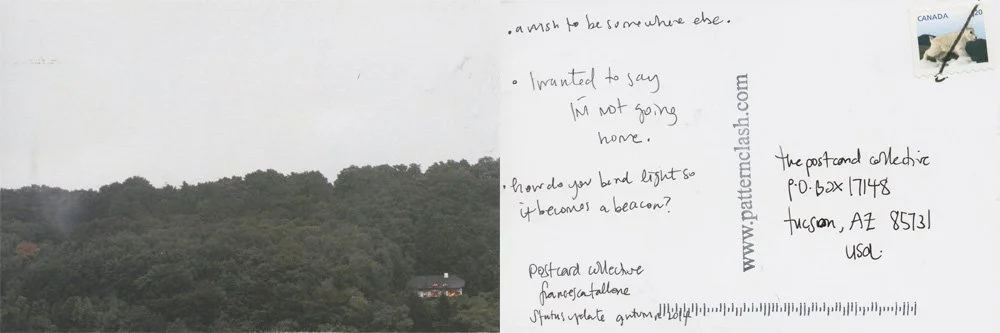 • a wish to be somewhere else.
• I wanted to say
I'm not going
home.
• how do you bend light so
it becomes a beacon?
postcard collective
francesca tallone
status update autumn 2014
www.patternclash.com
CANADA
the postcard collective
P.O. BOX 17148
tucson, AZ 85731
usa.